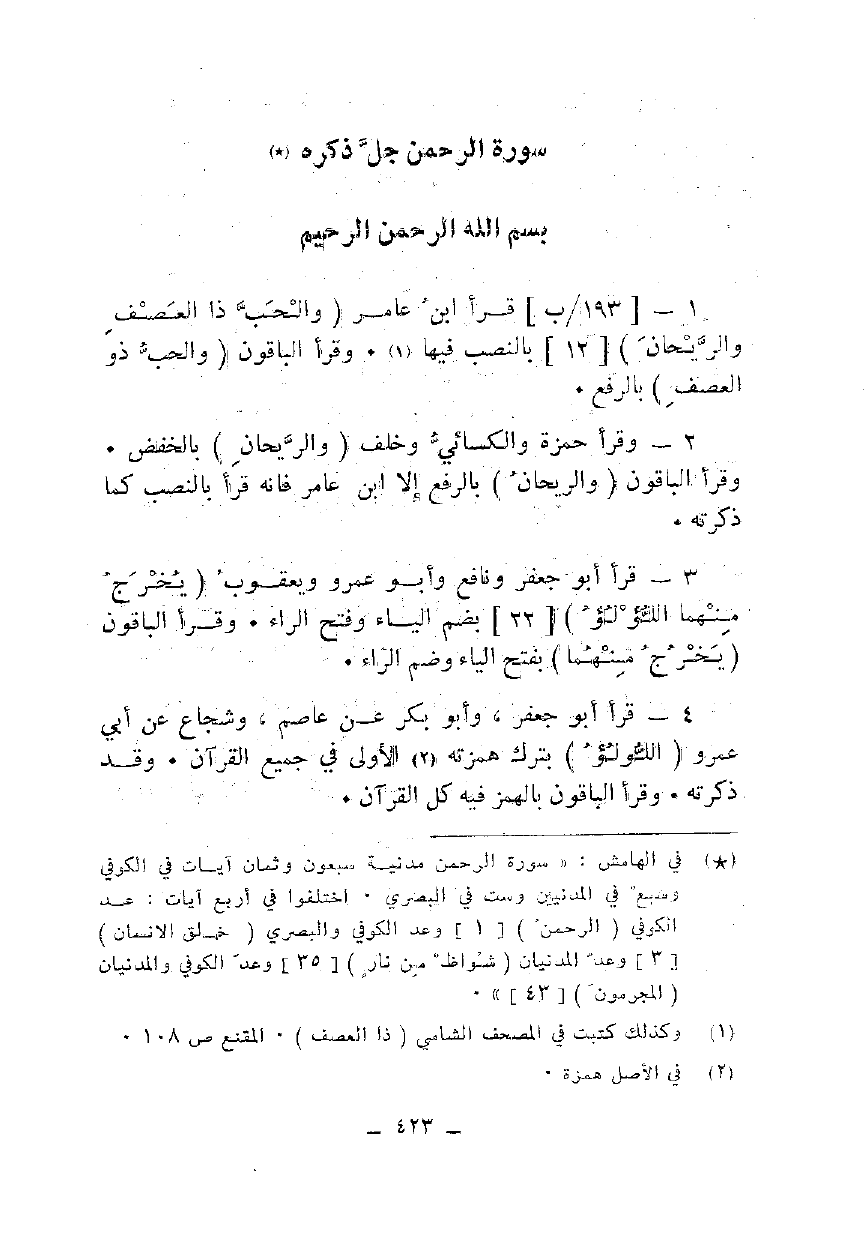 سورة الرحمن جلَّ ذكره (★)
بسم الله الرحمن الرحيم
١ ــ [ ١٩٣/ب ] قــرأ ابنُ عامــر ( والْحَبَّ ذا العَصْفِ
والرَّيْحانَ ) [ ١٢ ] بالنصب فيها (١) ٠ وقرأ الباقون ( والحبُّ ذو
العصفِ ) بالرفع ٠
٢ ــ وقرأ حمزة والكسائيُّ وخلف ( والرَّيحانِ ) بالخفض ٠
وقرأ الباقون ( والريحانُ ) بالرفع إلا ابن عامر فانه قرأ بالنصب كما
ذكرته ٠
٣ ــ قرأ أبو جعفر ونافع وأبــو عمرو ويعقــوبُ ( يُخْرَجُ
مِنْهما اللُّؤْلُؤُ ) [ ٢٢ ] بضم اليــاء وفتح الراء ٠ وقــرأ الباقون
( يَخْرُجُ مِنْهُما ) بفتح الياء وضم الرّاء ٠
٤ ــ قرأ أبو جعفر ، وأبو بكر عــن عاصم ، وشجاع عن أبي
عمرو ( اللُّولُؤُ ) بترك همزته (٢) الأولى في جميع القرآن ٠ وقــد
ذكرته ٠ وقرأ الباقون بالهمز فيه كل القرآن ٠
(★) في الهامش : « سورة الرحمن مدنيــة سبعون وثمان آيــات في الكوفي
وسبعٌ في المدنيين وست في البصري ٠ اختلفوا في أربع آيات : عــد
الكوفي ( الرحمنُ ) [ ١ ] وعد الكوفي والبصري ( خــلق الانسان )
[ ٣ ] وعدَّ المدنيان ( شُواظٌ من نارٍ ) [ ٣٥ ] وعدَّ الكوفي والمدنيان
( المجرمونَ ) [ ٤٣ ] » ٠
(١) وكذلك كتبت في المصحف الشامي ( ذا العصف ) ٠ المقنع ص ١٠٨ ٠
(٢) في الأصل همزة ٠
ــ ٤٢٣ ــ